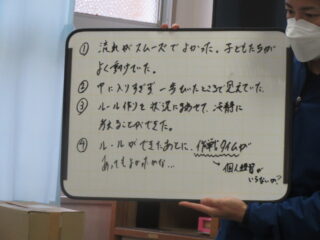 ① 流れがスムーズでよかった。子どもたちが
よく動けていた。
② 中に入りすぎず一歩ひいたところで見えていた。
③ ルール作りを状況にあわせて、冷静に
考えることができた。
④ ルールができたあとに、作戦タイムが
あってもよかったかな…
→ 個人練習が
いらないの?